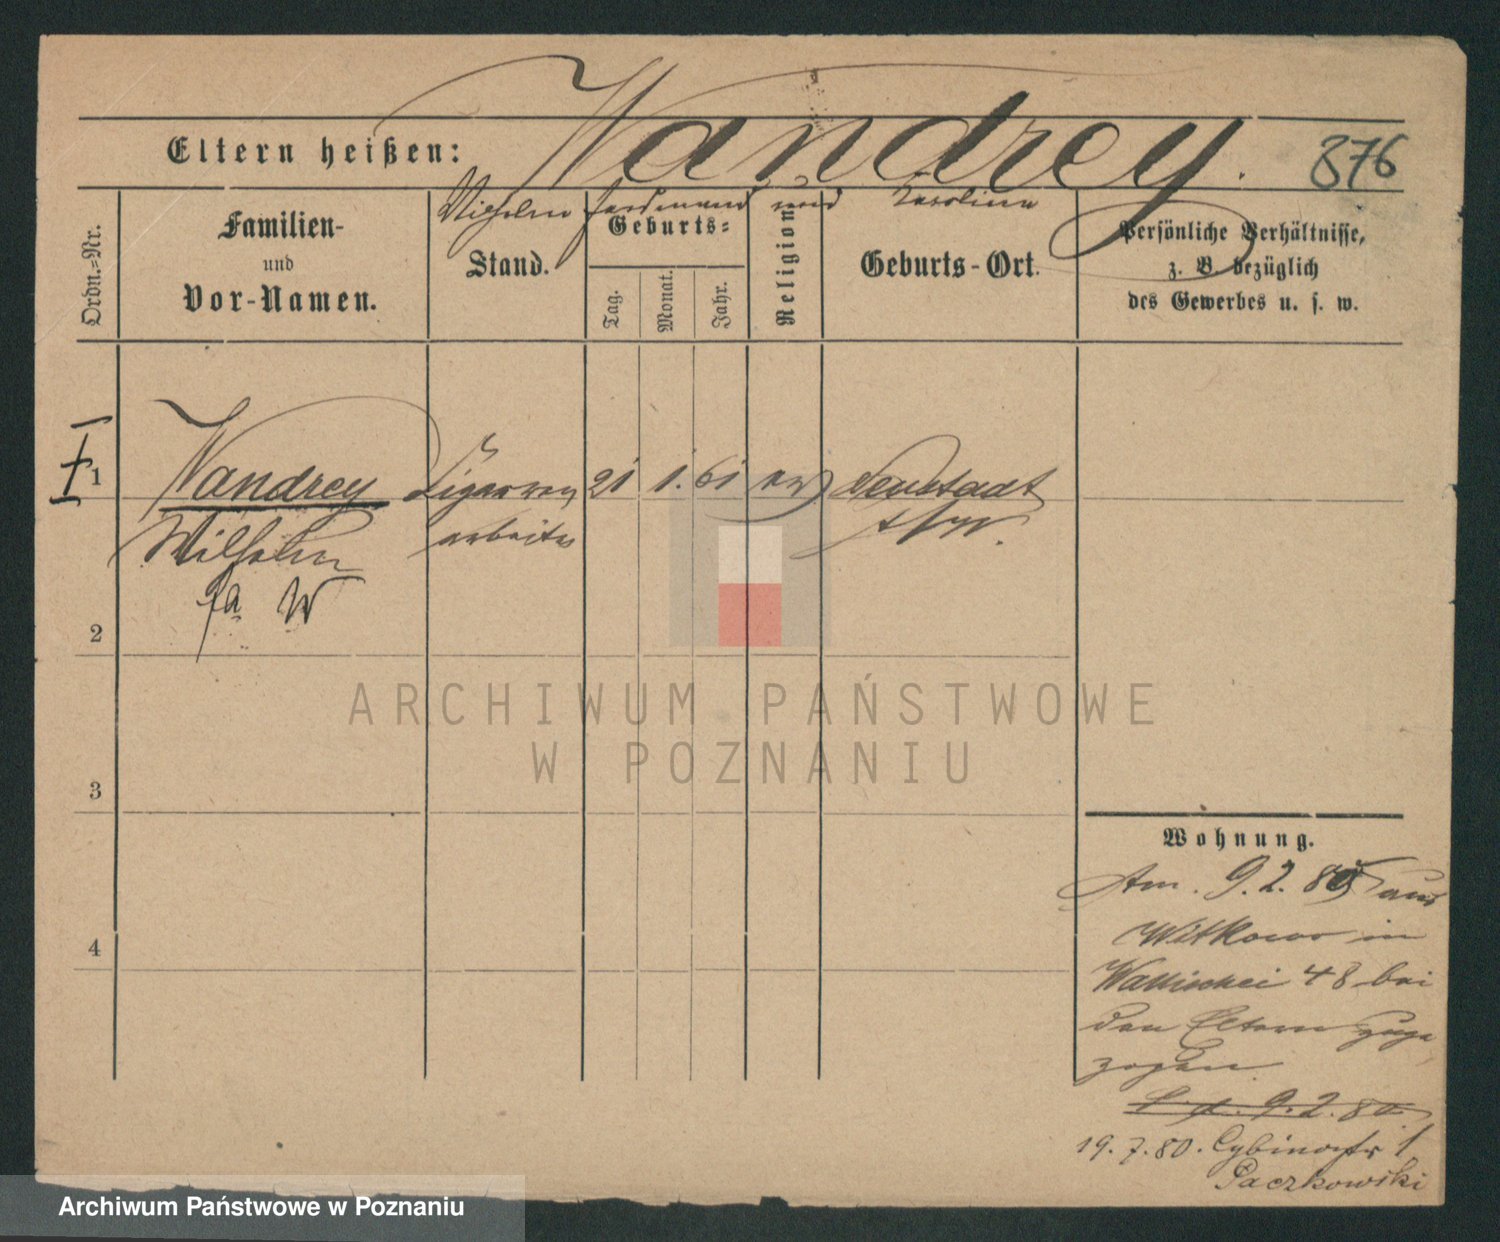 Wandrey.
Eltern heißen:
876
Wilhelm Ferdinand und Karoline
Ordn.=Nr.
Familien-
und
Vor-Namen.
Stand.
Geburts=
Tag.
Monat.
Jahr.
Religion
Geburts-Ort.
Persönliche Verhältnisse,
z. B. bezüglich
des Gewerbes u. s. w.
I
1
Wandrey
Wilhelm
Cigarren
arbeiter
21 1. 61 ev
Neustadt
2
3
4
ARCHIWUM PAŃSTWOWE
W POZNANIU
Wohnung.
Am 9.2.80 aus
Witkowo in
Wallischei 48 bei
den Eltern zuge
zogen
9.2.80
19.7.80. Cybinastr 1
Paczkowski
Archiwum Państwowe w Poznaniu